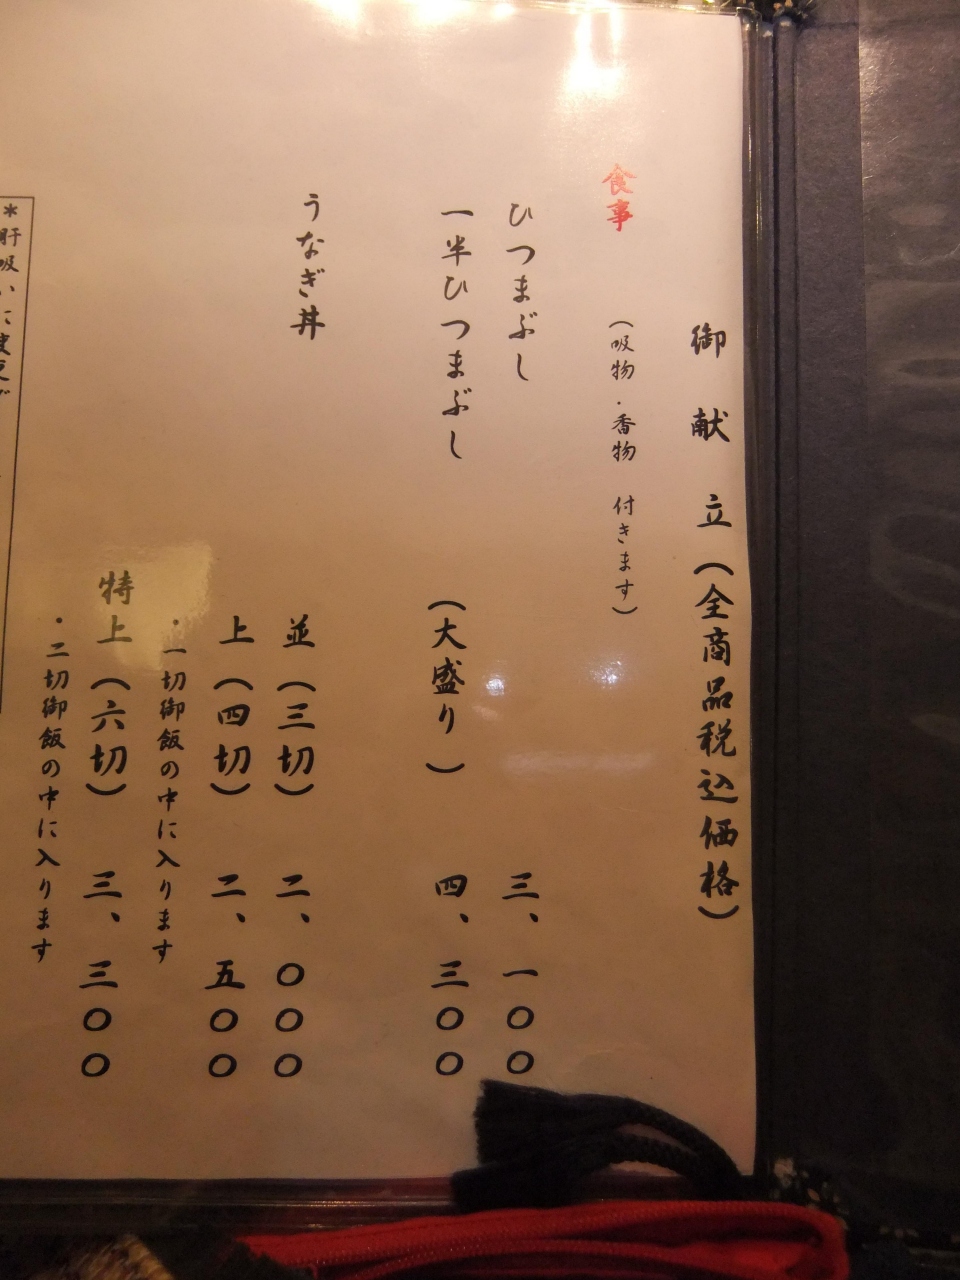 御献立（全商品税込価格）
食事
（吸物・香物 付きます）
ひつまぶし 三、一〇〇
一半ひつまぶし （大盛り） 四、三〇〇
うなぎ丼 並（三切） 二、〇〇〇
上（四切） 二、五〇〇
・一切御飯の中に入ります
特上（六切） 三、三〇〇
・二切御飯の中に入ります
＊肝吸いに変更